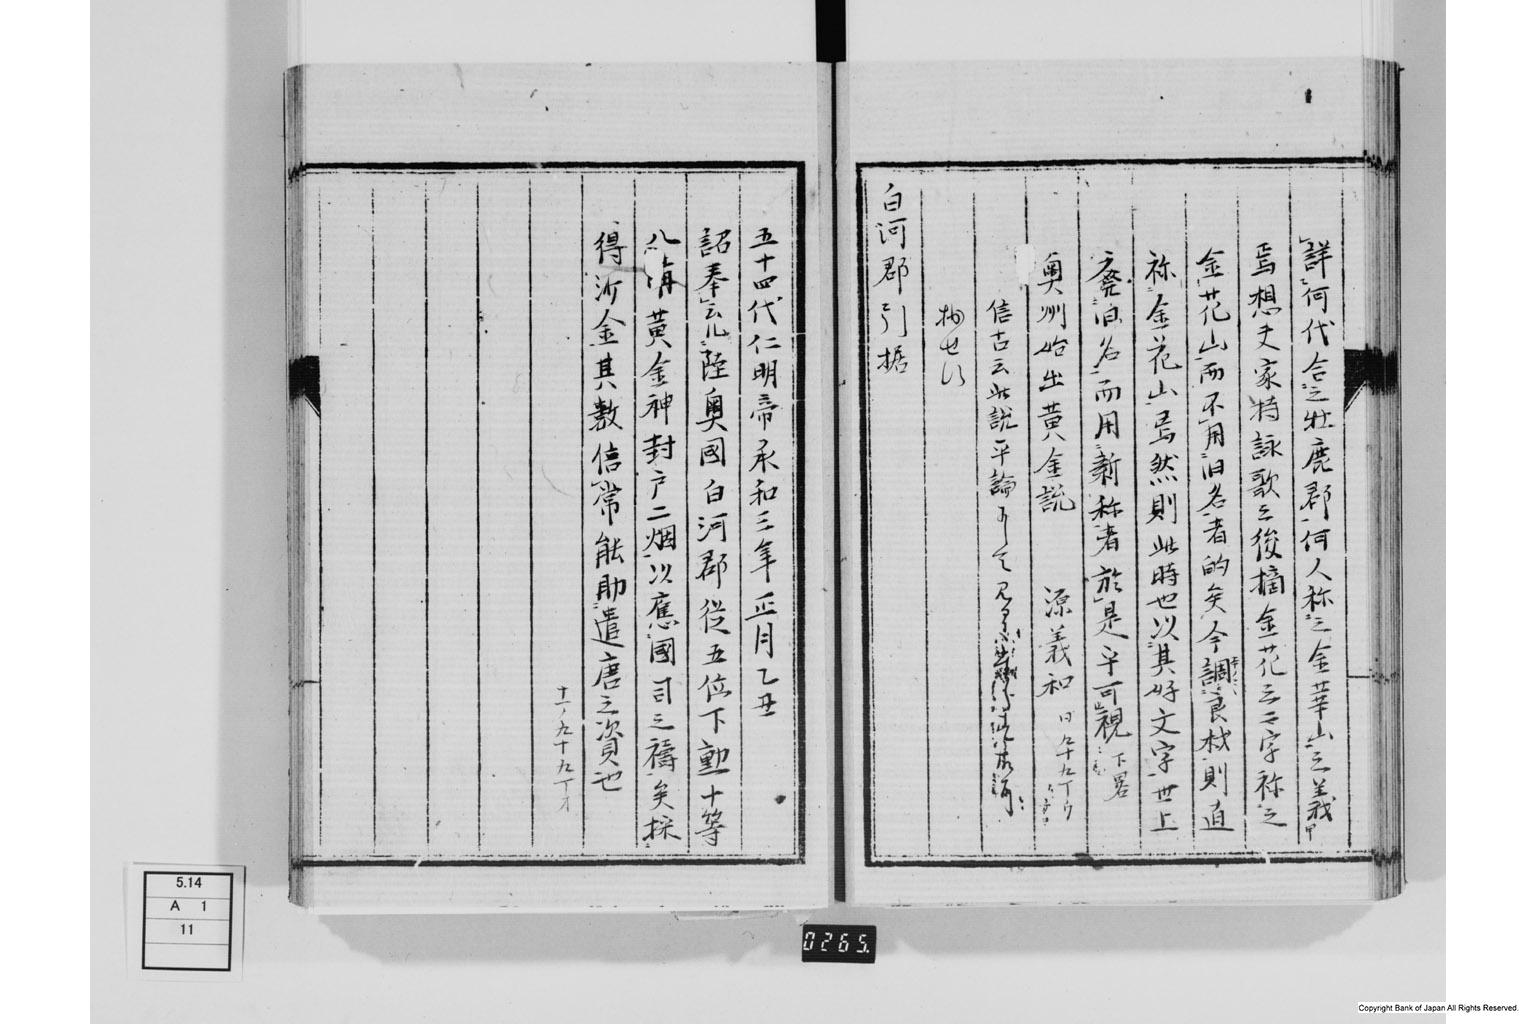 詳何代合之牡鹿郡何人称之金華山之義
焉想夫家持詠歌之後摘金花之二字称之
金花山而不用旧名者的矣今調良材則直
称金花山焉然則此時也以其好文字世上
廃旧名而用新称者於是乎可視 下畧
奥州始出黄金説 源義和 九十九丁ウ
信古云此説平論
白河郡引据
五十四代仁明帝承和三年正月乙丑
詔奉云陸奥國白河郡従五位下勲十等
八溝黄金神封戸二烟以應國司之禱矣採
得沙金其数倍常能助遣唐之資也
十一ノ九十九丁オ
5.14
A 1
11
0265.
Copyright Bank of Japan All Rights Reserved.